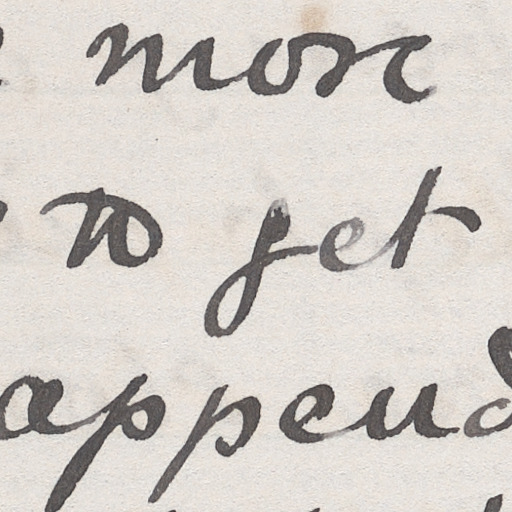 more
to get
append